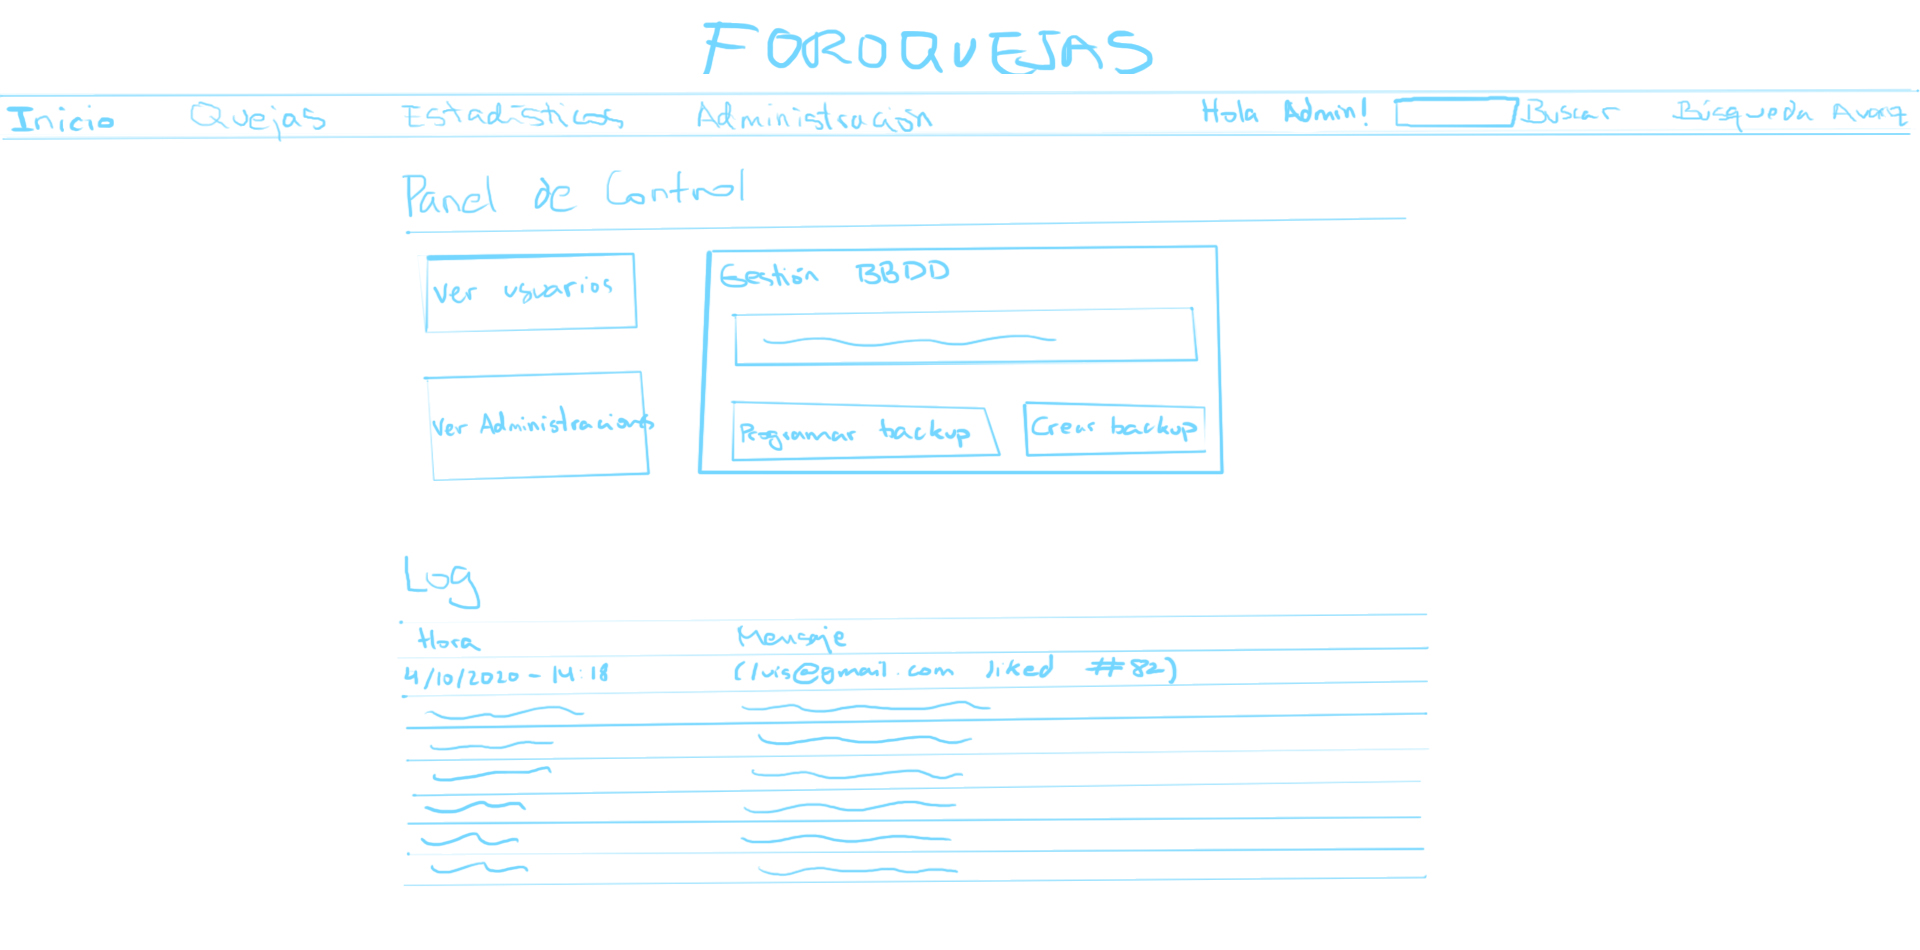 FOROQUEJAS
Inicio Quejas Estadísticas Administración Hola Admin! Buscar Búsqueda Avanz
Panel de Control
Ver usuarios
Ver Administraciones
Gestión BBDD
Programar backup Crear backup
Log
Hora Mensaje
4/10/2020 - 14:18 (luis@gmail.com liked #82)